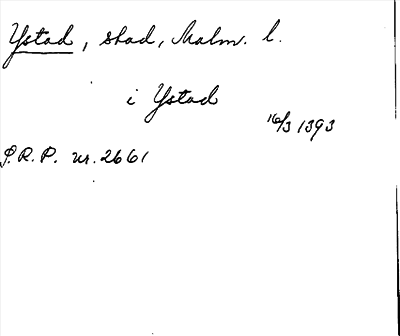 Ystad, stad, Malm. l.
i Ystad
16/3 1393
S.R.P. nr. 2661